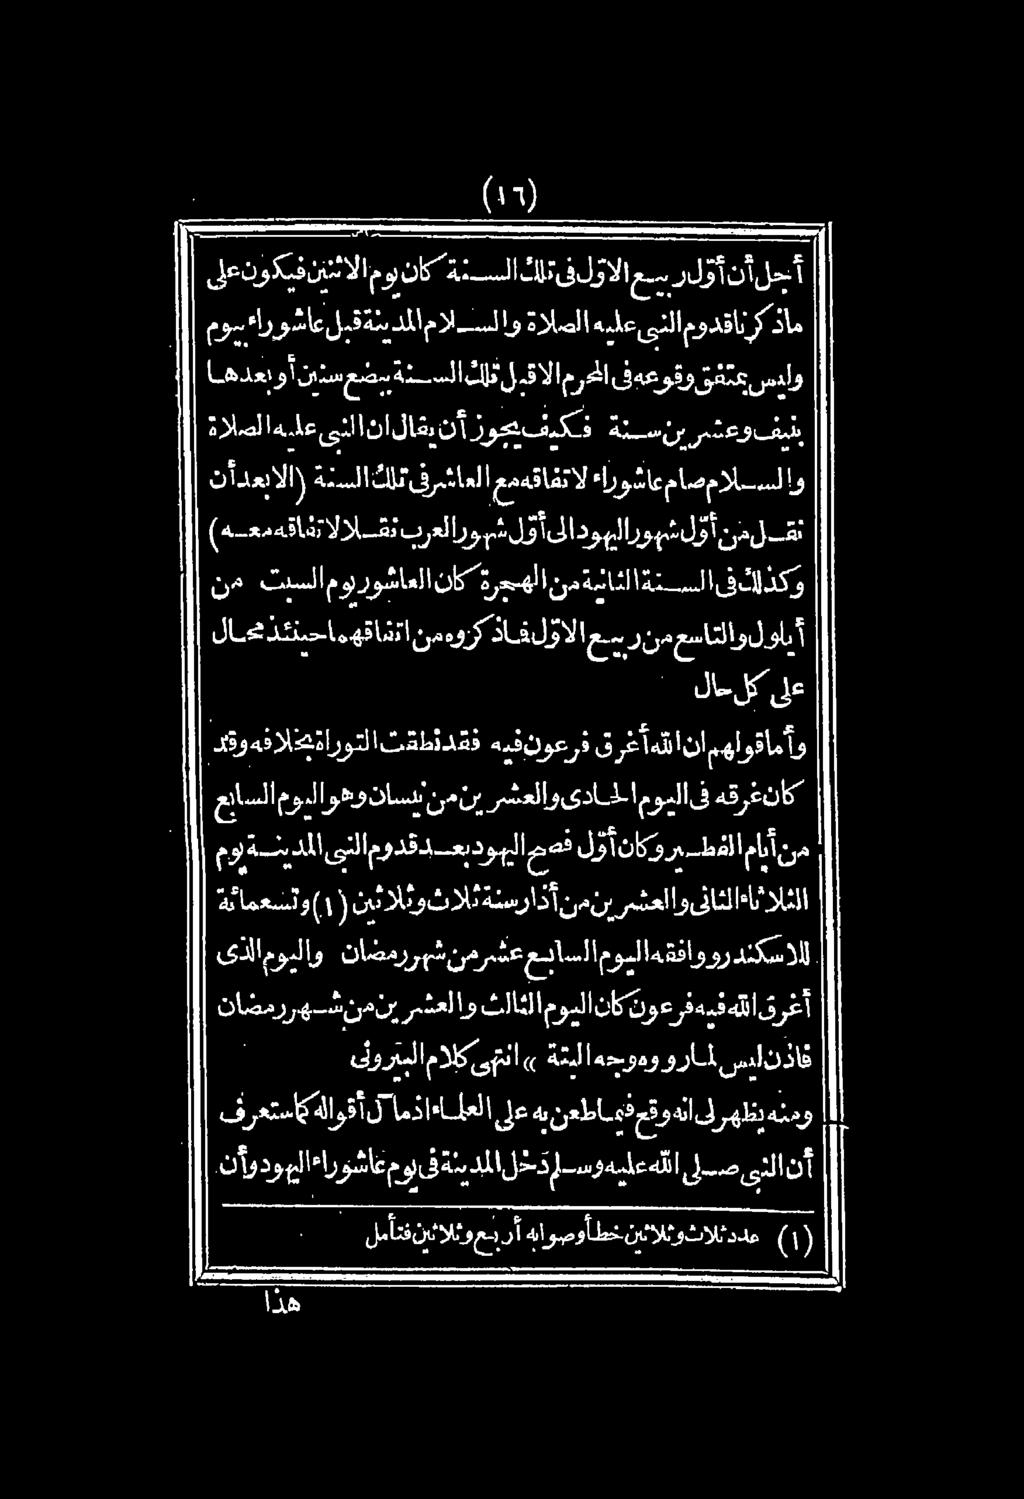 (١٦)
أجل أن أوّل ربيع الاوّل فى تلك السنة كان يوم الاثنين فيكون على
ماذكرنا قدوم النبى عليه الصلاة والسلام المدينة قبل عاشوراء بيوم
وليس بمتفق وقوعه فى المحرم الاقبل تلك السنة ببضع سنين أو بعدها
بنيف وعشرين سنة فكيف يجوز أن يقال ان النبى عليه الصلاة
والسلام صام عاشوراء لاتفاقه مع العاشر فى تلك السنة (الابعد أن
نقل من أوّل شهور اليهود الى أوّل شهور العرب نقلا لاتفاقه معه)
وكذلك فى السنة الثانية من الهجرة كان العاشور يوم السبت من
أيلول والتاسع من ربيع الاوّل فاذكروه من اتفاقهما حينئذ محال
على كل حال
وأما قولهم ان الله أغرق فرعون فيه فقد نطقت التوراة بخلافه وقد
كان غرقه فى اليوم الحادى والعشرين من نيسان وهو اليوم السابع
من أيام الفطير وكان أوّل فصح اليهود بعد قدوم النبى المدينة يوم
الثلاثاء الثانى والعشرين من أذار سنة ثلاث وثلاثين (١) وتسعمائة
للاسكندر ووافقه اليوم السابع عشر من شهر رمضان واليوم الذى
أغرق الله فيه فرعون كان اليوم الثالث والعشرين من شهر رمضان
فاذن ليس لما رووه وجه البتة » انتهى كلام البيرونى
ومنه يظهر لى انه وقع فيما طعن به على العلماء اذ مآل أقواله كما ستعرف
أن النبى صلى الله عليه وسلم دخل المدينة فى يوم عاشوراء اليهود وأن
(١) عدد ثلاث وثلاثين خطأ وصوابه أربع وثلاثين فتأمل
هذا